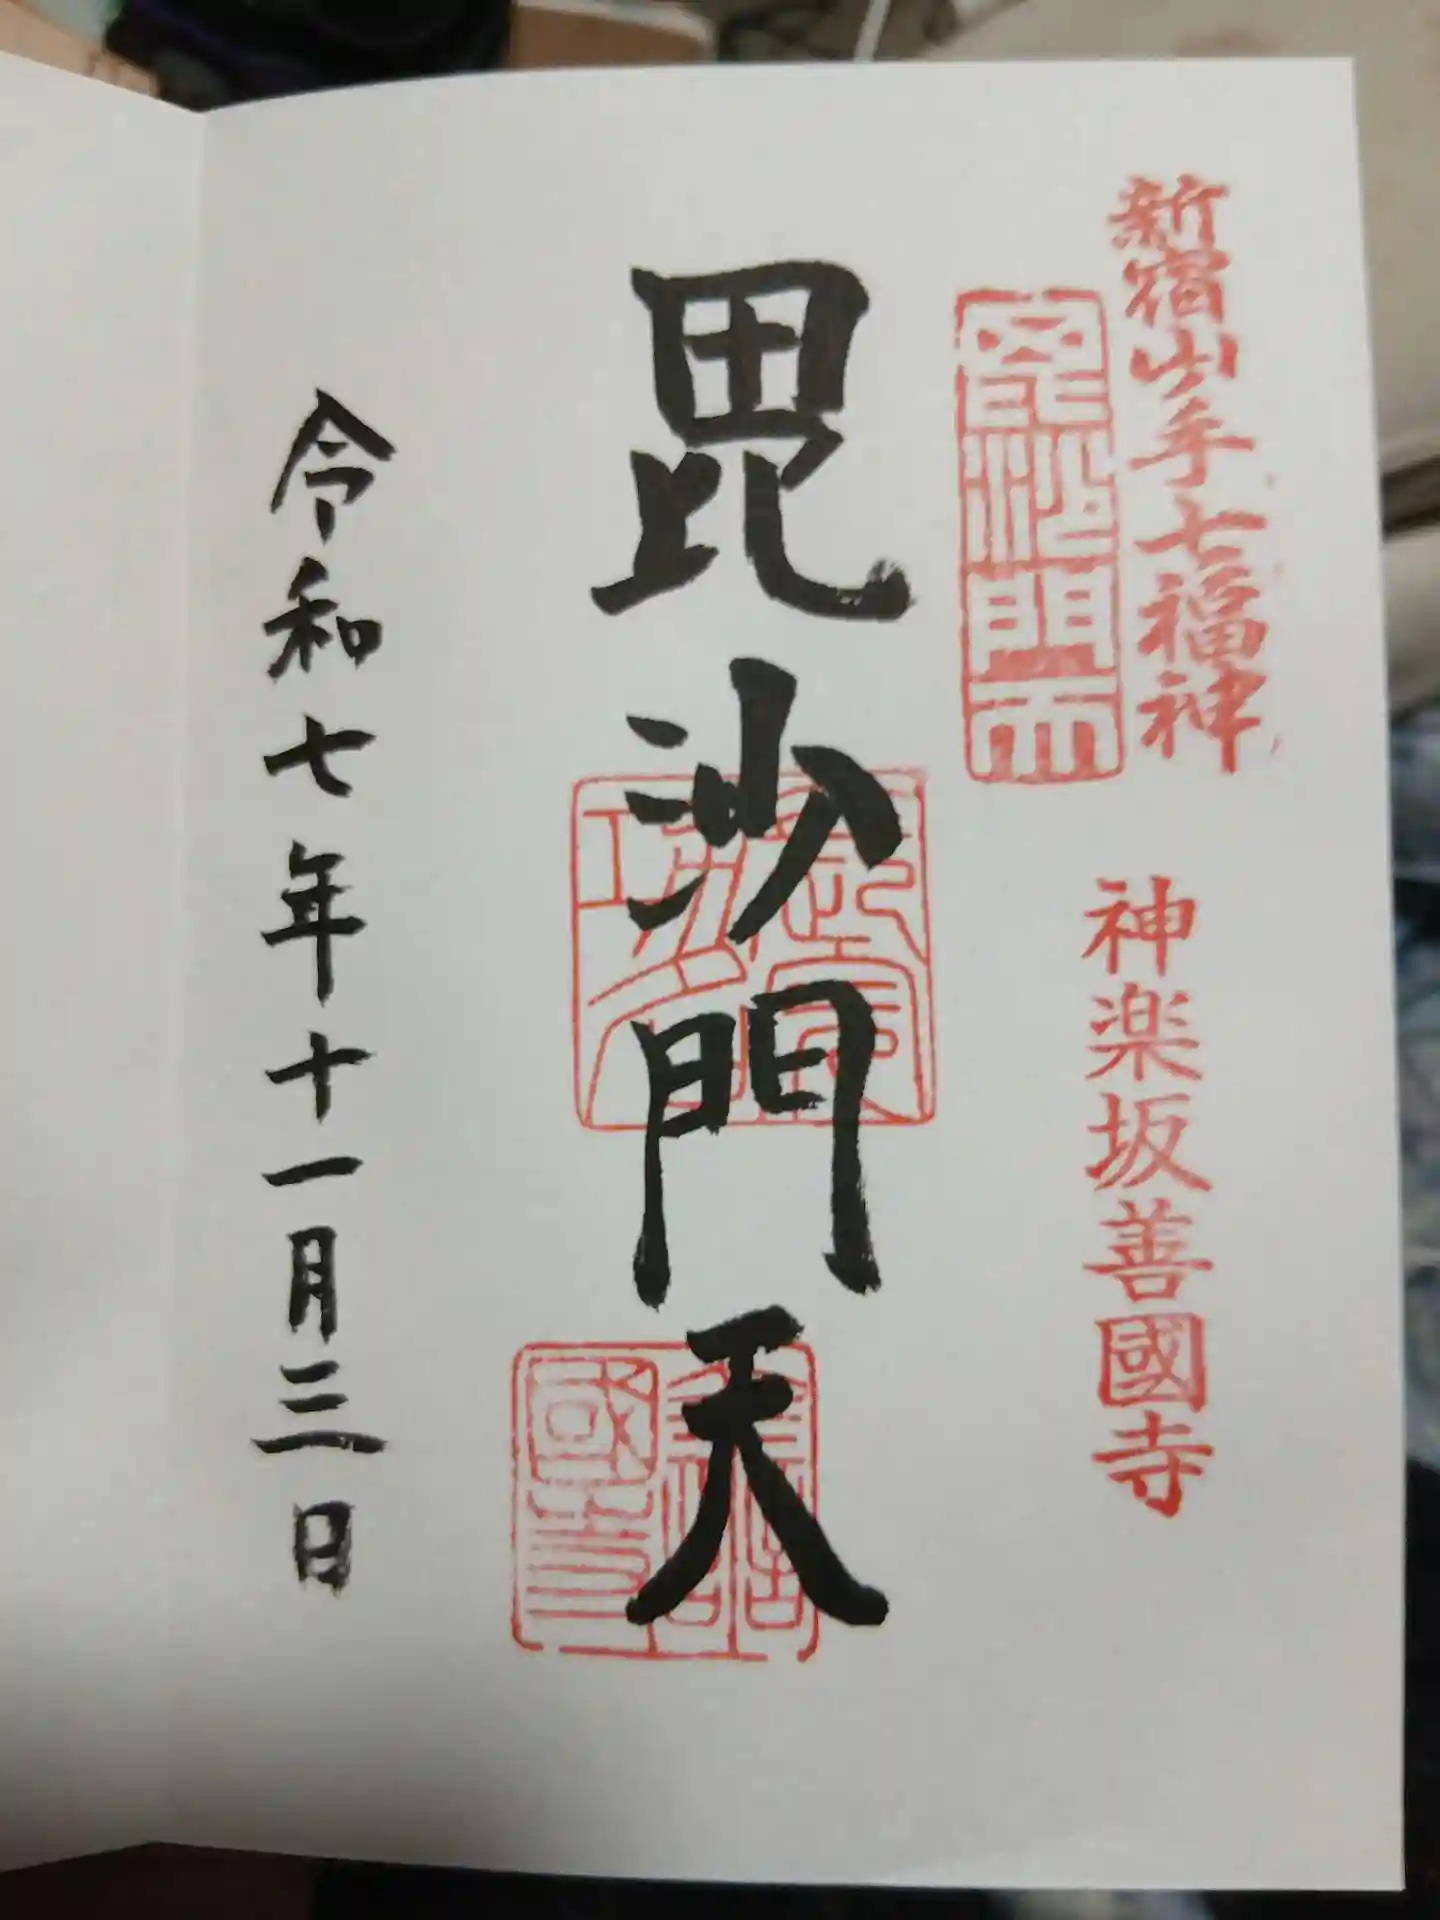 新宿山手七福神
神楽坂善國寺
毘沙門天
毘沙門天
善國寺
令和七年十一月三日